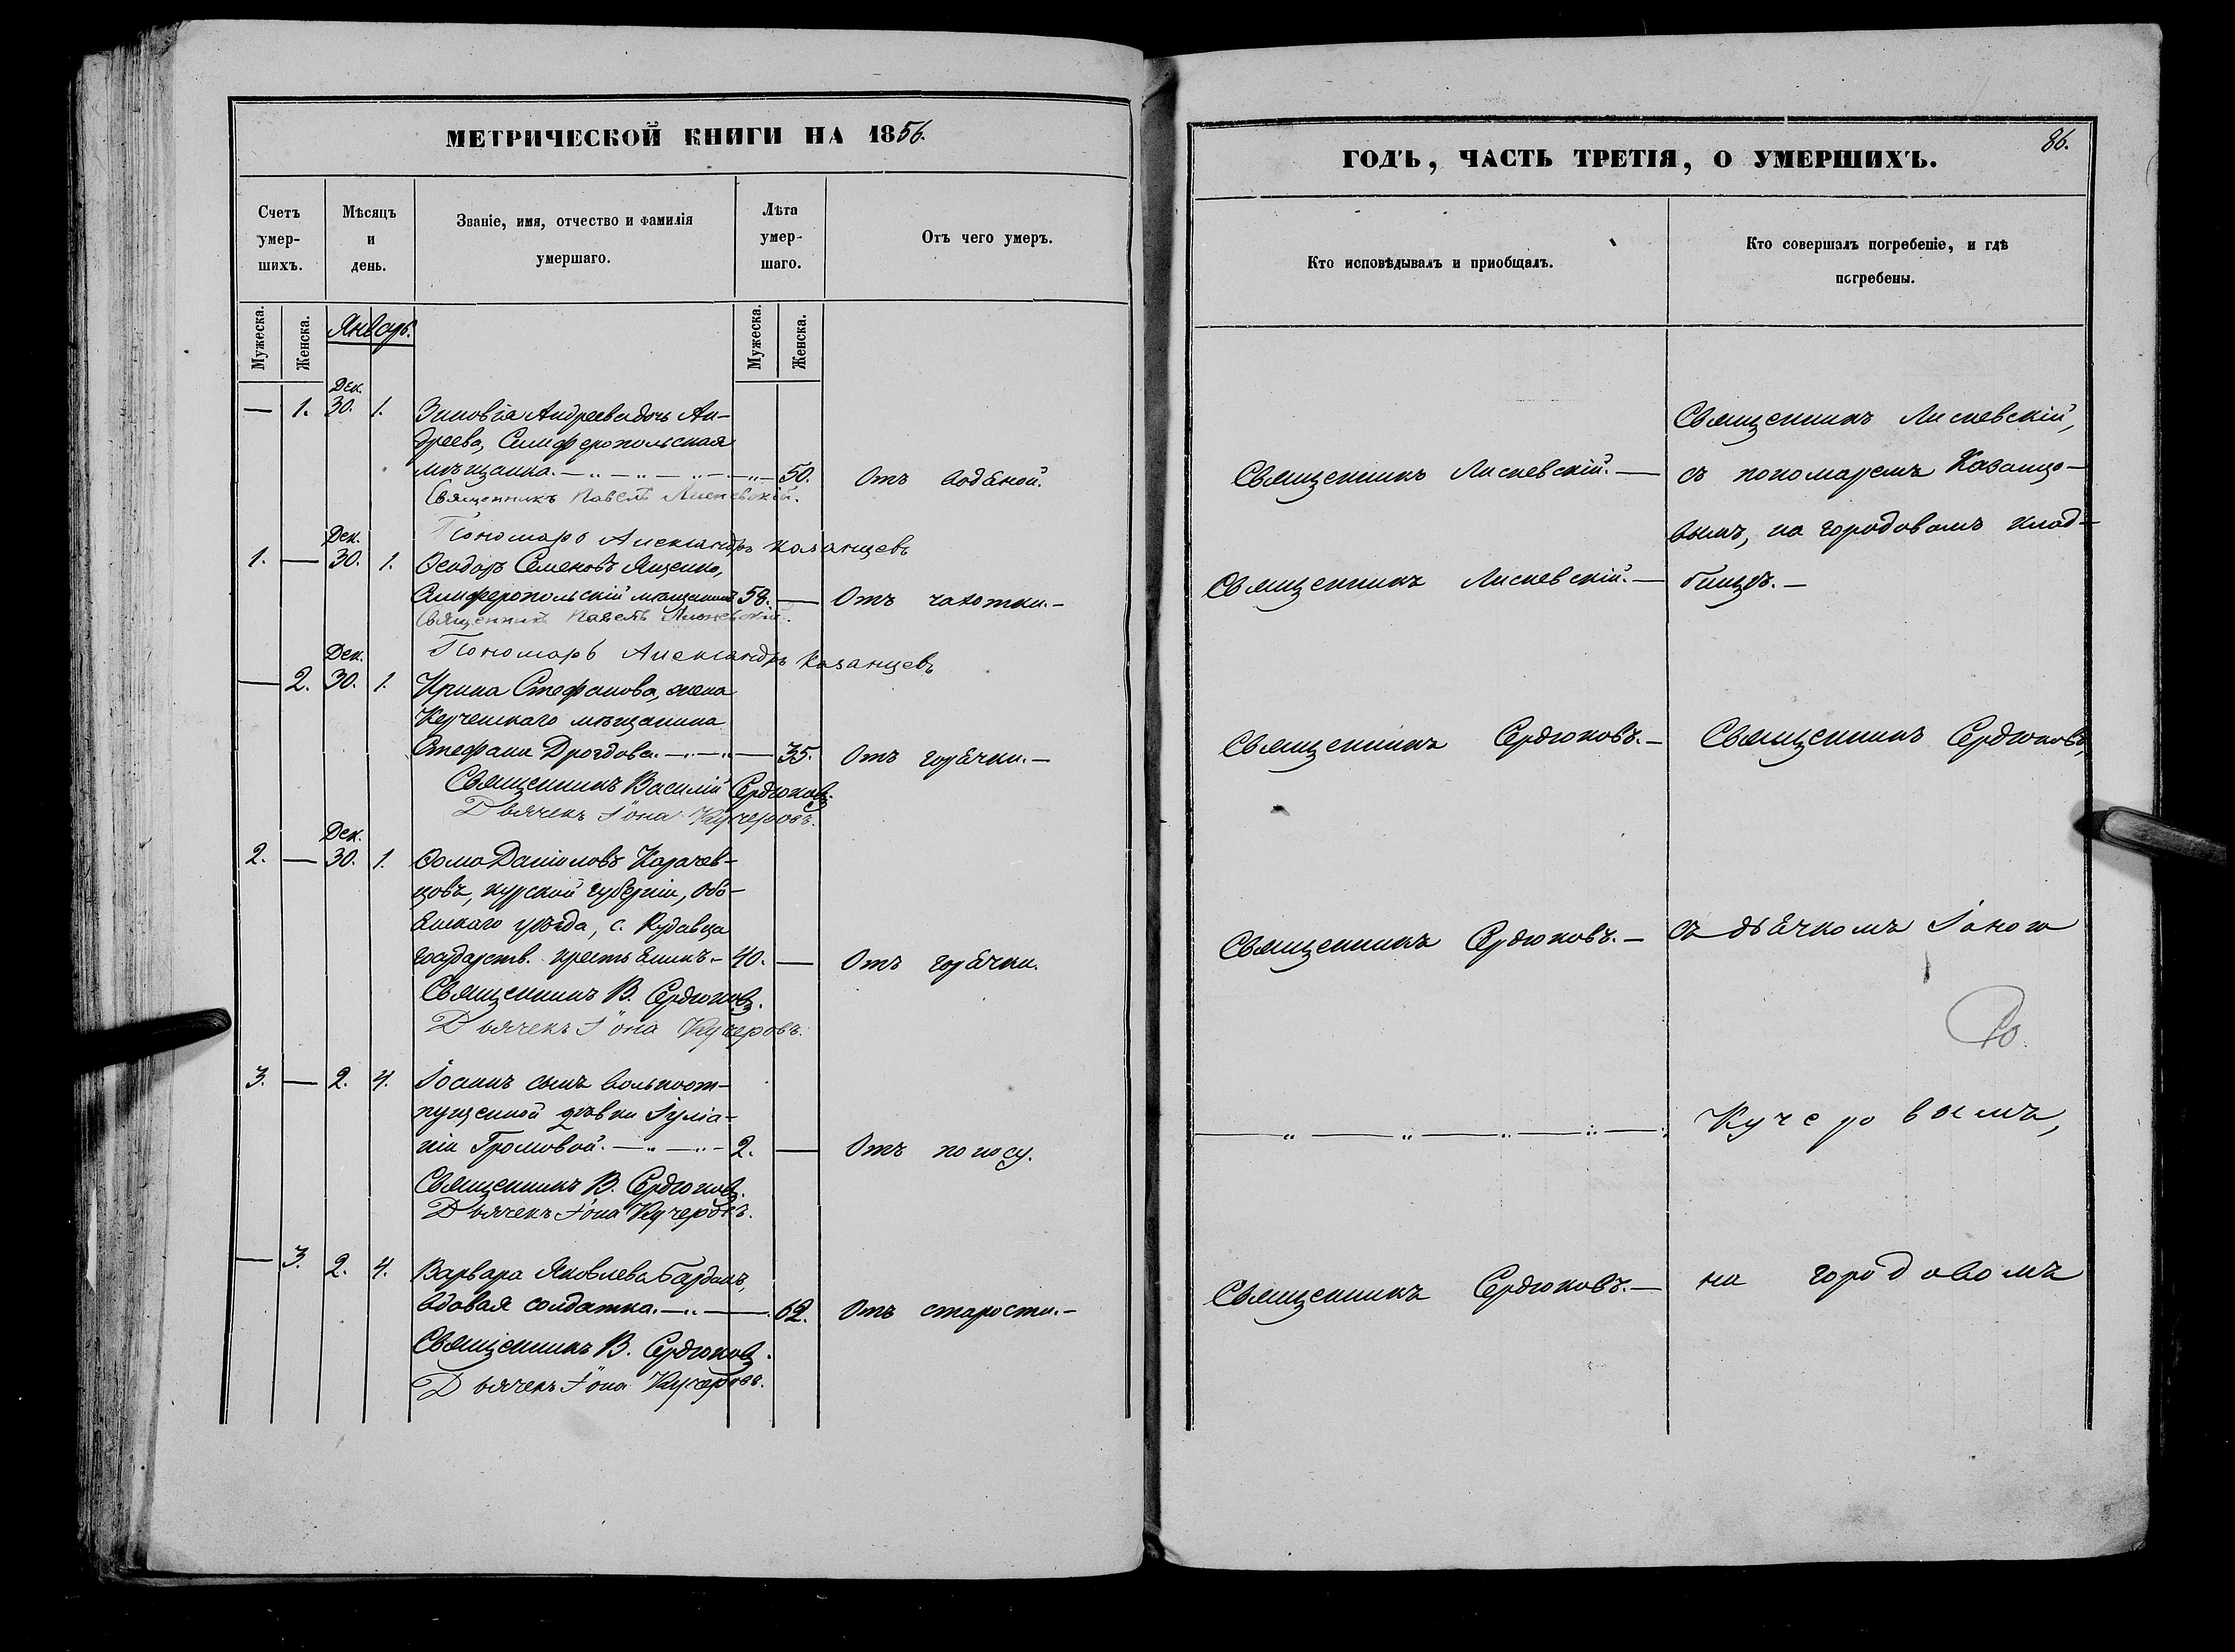 МЕТРИЧЕСКОЙ КНИГИ НА 1856.
Счетъ умер-шихъ.
Мѣсяцъ и день.
Званіе, имя, отчество и фамилія умершаго.
Лѣта умер-шаго.
Отъ чего умеръ.
Мужеска.
Женска.
Январь.
Мужеска.
Женска.
Дек.
— 1. 30. 1. Зиновія Андреева дочь Ан-
дреева, Симферопольская
мѣщанка. — 50. Отъ водяной.
Священникъ Павелъ Лисневскій.
Пономарь Александръ Казанцевъ
Дек.
1. — 30. 1. Ѳеодоръ Семеновъ Яценко,
Симферопольскій мѣщанинъ 58. — Отъ чахотки. —
Священникъ Павелъ Лисневскій.
Пономарь Александръ Казанцевъ
Дек.
— 2. 30. 1. Ирина Стефанова, жена
Керченскаго мѣщанина
Стефана Дроздова. — 35. Отъ горячки. —
Священникъ Василій Сердюковъ.
Дьячекъ Іона Кучеровъ.
Дек.
2. — 30. 1. Ѳома Даніиловъ Карачев-
цовъ, курской губерніи, обо-
янскаго уѣзда, с. Кудавца
государств. крестьянинъ. — 40. — Отъ горячки.
Священникъ В. Сердюковъ.
Дьячекъ Іона Кучеровъ.
3. — 2. 4. Іоаннъ сынъ вольноот-
пущенной дѣвки Іуліа-
ніи Громовой. — 2. — Отъ поносу.
Священникъ В. Сердюковъ.
Дьячекъ Іона Кучеровъ.
— 3. 2. 4. Варвара Яковлева Бардакъ,
вдовая солдатка. — 62. Отъ старости. —
Священникъ В. Сердюковъ.
Дьячекъ Іона Кучеровъ.
86.
ГОДЪ, ЧАСТЬ ТРЕТІЯ, О УМЕРШИХЪ.
Кто исповѣдывалъ и приобщалъ.
Кто совершалъ погребеніе, и гдѣ
погребены.
Священникъ Лисневскій,
Священникъ Лисневскій. — съ пономаремъ Казанцо-
вымъ, на городовомъ клад-
Священникъ Лисневскій. — бищѣ. —
Священникъ Сердюковъ. — Священникъ Сердюковъ,
Священникъ Сердюковъ. — съ дьячкомъ Іоною
Кучеровымъ,
Священникъ Сердюковъ. — на городовомъ